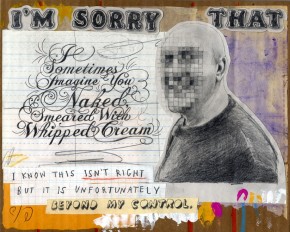 I'M SORRY THAT
I
Sometimes
Imagine You
Naked
Smeared With
Whipped Cream
I KNOW THIS ISN'T RIGHT
BUT IT IS UNFORTUNATELY
BEYOND MY CONTROL.